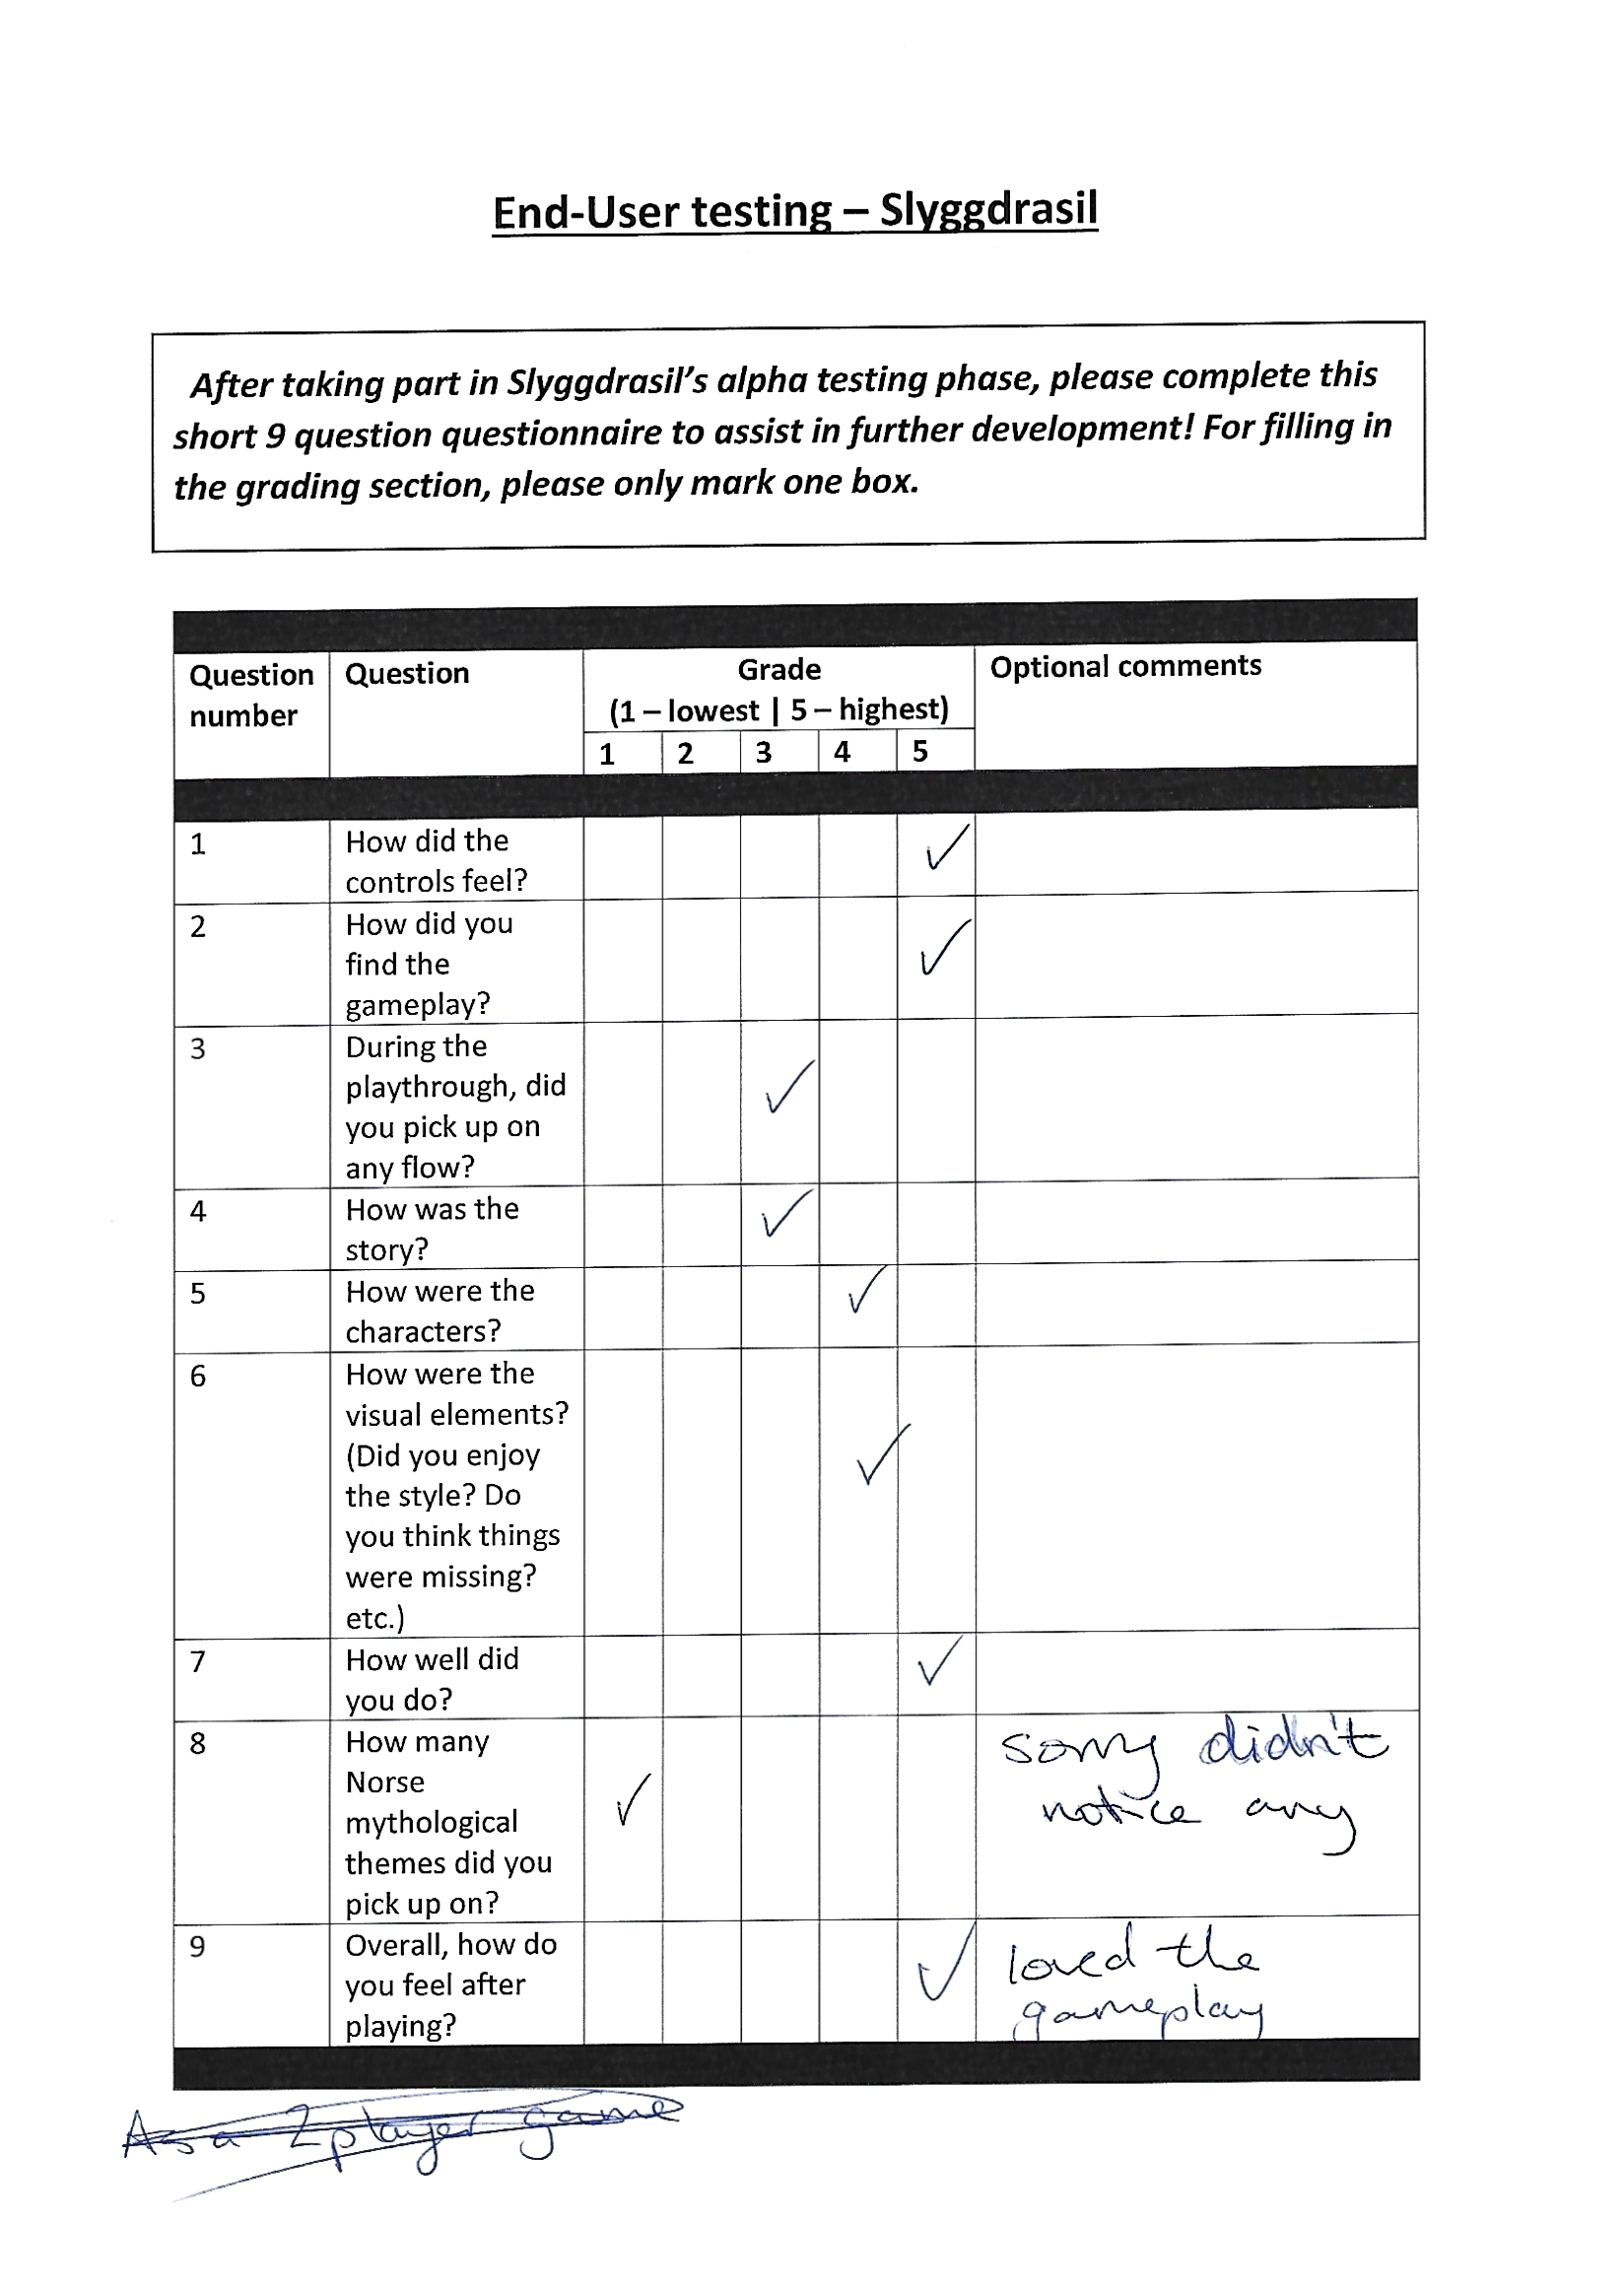 End-User testing – Slyggdrasil
After taking part in Slyggdrasil's alpha testing phase, please complete this
short 9 question questionnaire to assist in further development! For filling in
the grading section, please only mark one box.
Question number Question Grade (1 – lowest | 5 – highest) Optional comments
1 2 3 4 5
1 How did the
controls feel? ✓
2 How did you
find the ✓
gameplay?
3 During the
playthrough, did ✓
you pick up on
any flow?
4 How was the ✓
story?
5 How were the ✓
characters?
6 How were the
visual elements?
(Did you enjoy ✓
the style? Do
you think things
were missing?
etc.)
7 How well did ✓
you do?
8 How many sorry didn't
Norse ✓ notice any
mythological
themes did you
pick up on?
9 Overall, how do loved the
you feel after ✓ gameplay
playing?
As a 2 player game